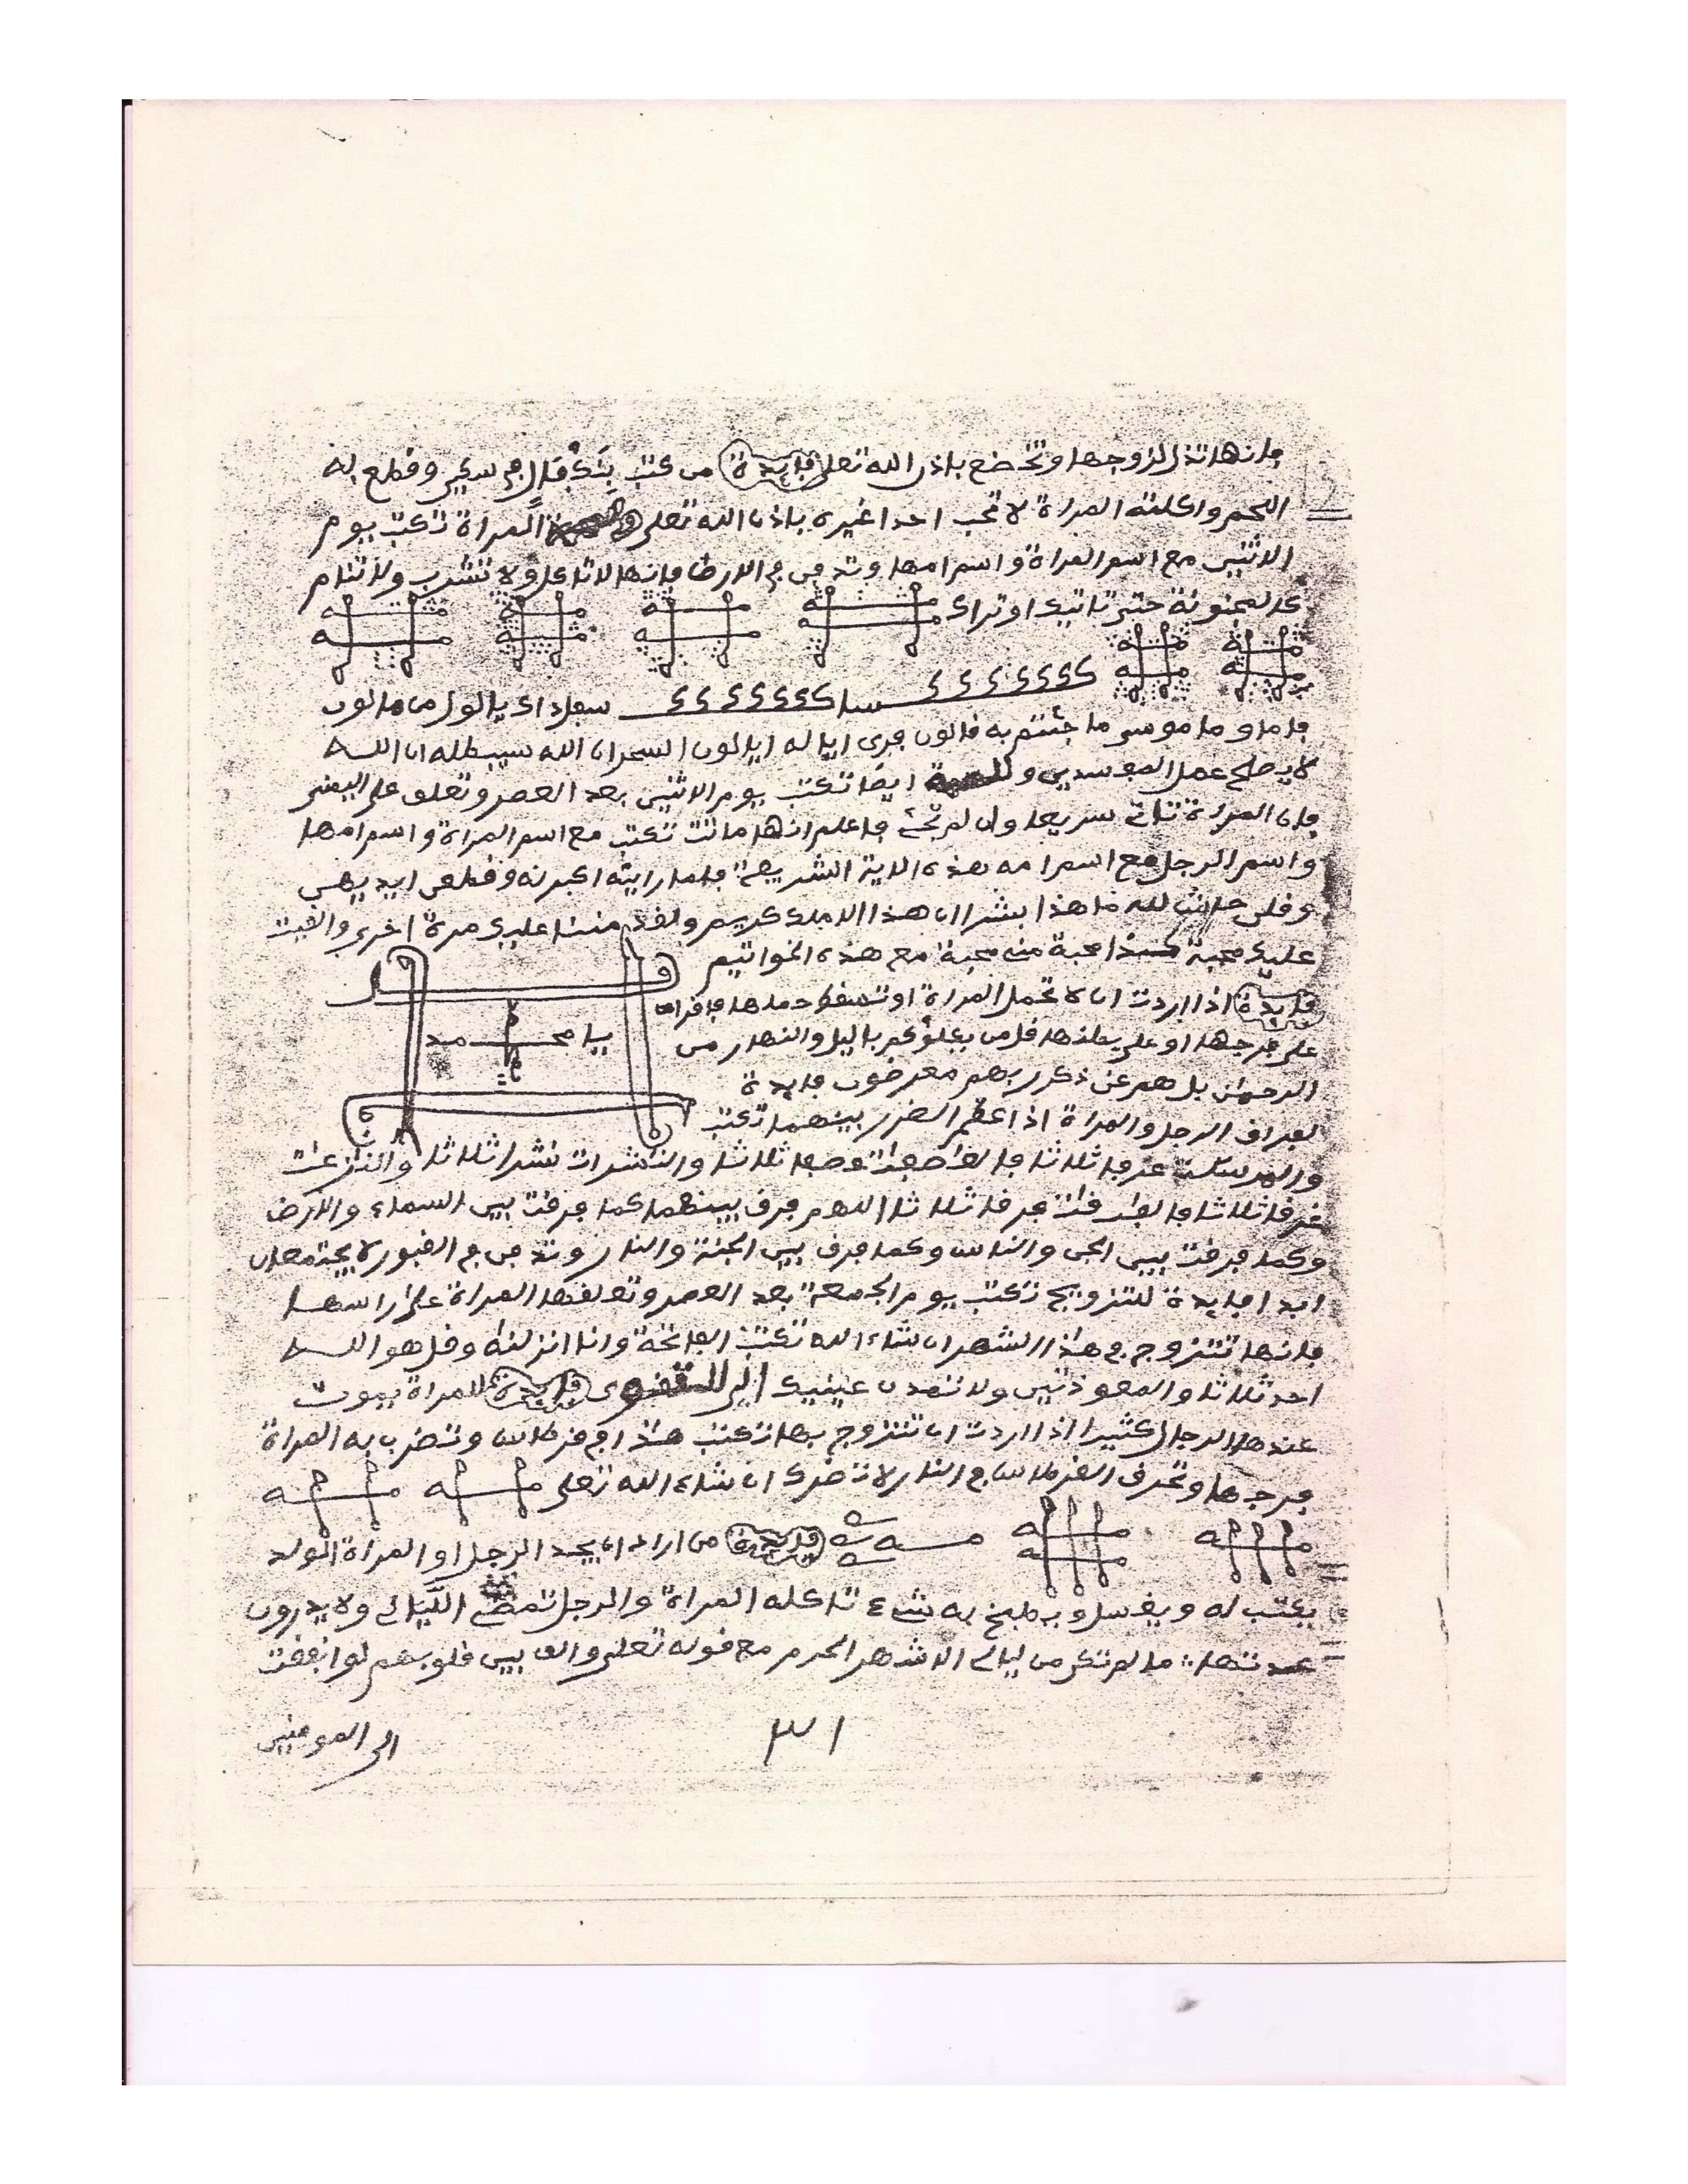 فانها تذل لزوجها وتخضع باذن الله تعلى فايدة من كتب في سكين وقطع به
اللحم واكلته المراة لا تحب احدا غيره باذن الله تعلى المراة تكتب يوم
الاثنين مع اسم المراة واسم امها وتدفن في الارض فانها لا تاكل ولا تشرب ولا تنام
كالمجنونة حتى تاتيك او تراك
فلما و ما موسى ما جئتم به قالون السحر ان الله سيبطله ان الله
لا يصلح عمل المفسدين ايضا تكتب يوم الاثنين بعد العصر وتعلق على اليمنى
فان المراة تات سريعا وان لم تجئ فاعلم انها ماتت تكتب مع اسم المراة واسم امها
واسم الرجل مع اسم امه هذه الاية الشريفة فلما راينه اكبرنه وقطعن ايديهن
وقلن حاش لله ما هذا بشرا ان هذا الا ملك كريم ولقد مننا عليك مرة اخرى والقيت
عليك محبة محبة منه محبة مع هذه الخواتيم
فايدة اذا اردت ان لا تحمل المراة او تسقط حملها فاقراه
على فرجها او على بطنها قل من يكلؤكم باليل والنهار من
الرحمن بل هم عن ذكر ربهم معرضون فايدة
يا محمد
لفراق الرجل والمراة اذا عظم الضرر بينهما تكتب
والمرسلت عرفا ثلاثا فالعاصفات عصفا ثلاثا والناشرات نشرا ثلاثا والنازعات
غرقا ثلاثا فالفارقات فرقا ثلاثا اللهم فرق بينهما كما فرقت بين السماء والارض
وكما فرقت بين الجن والناس وكما فرق بين الجنة والنار وتدفن في القبور لا يجتمعان
ابدا فايدة للتزويج تكتب يوم الجمعة بعد العصر وتعلقها المراة على راسها
فانها تتزوج في هذا الشهر ان شاء الله تكتب الفاتحة وانا انزلنه وقل هو الله
احد ثلاثا والمعوذتين ولا تمدن عينيك الى للتقوى فايدة للمراة يموت
عندها الرجال كثيرا اذا اردت ان تتزوج بها تكتب هذا في قرطاس وتضرب به المراة
فرجها وتحرق القرطاس في النار لا تضرك ان شاء الله تعلى
فايدة من اراد ان يجد الرجل او المراة الولد
يكتب له ويغسل ويطبخ به شيء تاكله المراة والرجل تمضي الليالي ولا يدرون
عدتها ما لم تكن من ليالي الاشهر الحرم مع قوله تعلى والف بين قلوبهم لو انفقت
الى المومنين
٣١